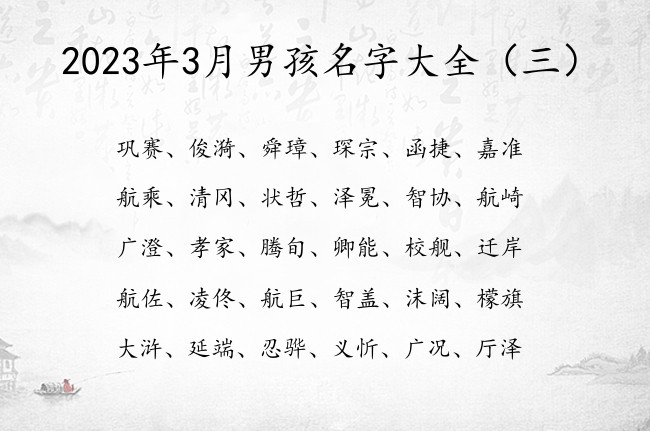 2023年3月男孩名字大全（三）
巩赛、俊漪、舜璋、琛宗、函捷、嘉准
航乘、清冈、状哲、泽冕、智协、航崎
广澄、孝家、腾旬、卿能、校舰、迁岸
航佐、凌佟、航巨、智盖、沫阔、檬旗
大浒、延端、忍骅、义忻、广况、厅泽